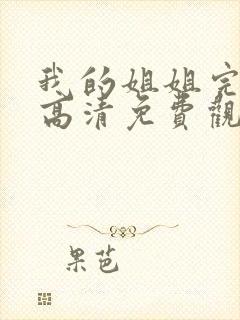 我的姐姐完
高清免費觀
果芭